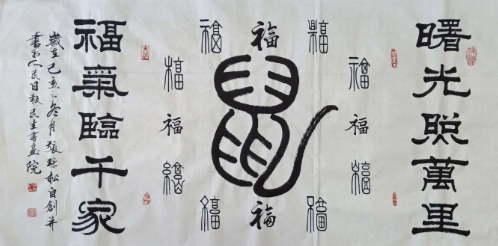 曙光照萬里
福 福 福
福 福
福 鼠 福
福 福
福 福 福
福氣臨千家
歲在己亥冬月張琮松自創并
書於人民日報民生書画院